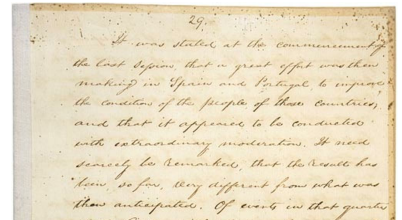 29.
It was stated at the commencement of
the last session, that a great effort was then
making in Spain and Portugal to improve
the condition of the people of those countries,
and that it appeared to be conducted
with extraordinary moderation. It need
scarcely be remarked, that the result has
been, so far, very different from what was
then anticipated. Of events in that quarter